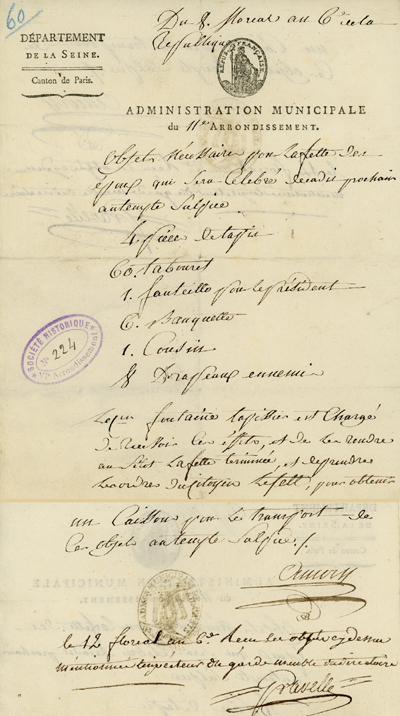 60
Du 8. floreal an 6e de la
Republique
DÉPARTEMENT
DE LA SEINE.
Canton de Paris.
RÉPUBLIQUE FRANÇAISE
ADMINISTRATION MUNICIPALE
du 11e ARRONDISSEMENT.
Objets Nécessaire pour la fette des
époux qui sera Célébré decadi prochain
au temple Sulpice
4 piece de tapis
60. tabouret
1. fauteille pour le président
6. Banquette
1. Cousin
8 Drapeaux ennemis
SOCIÉTÉ HISTORIQUE
No 224
VIe Arrondissement
Le Cen fontaine tapissier est Chargé
de recevoir Ces effets, et de les rendre
au Sitot la fette terminée, et de prendre
les ordres du Citoyen pour obtenir
un Caisson pour le transport de
Ces objets au temple Sulpice ./.
le 12 floreal an 6e Recu les objets cy dessus
mentionnes inspecteur du garde meuble du directoire
Gravelle